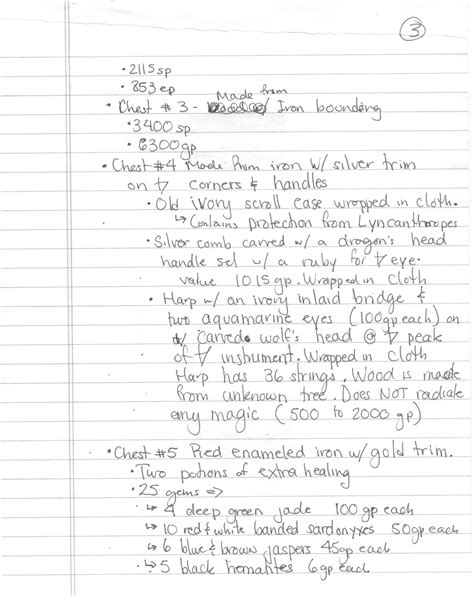 3
• 2115 sp
• 853 ep
Made from
• Chest # 3 - w/ Iron bounding
• 3400 sp
• 6300 gp
• Chest #4 Made from iron w/ silver trim
on corners & handles
• Old ivory scroll case wrapped in cloth.
↳ Contains protection from Lyncanthropes
• Silver comb carved w/ a dragon's head
handle set w/ a ruby for eye.
value 1015 gp. Wrapped in cloth
• Harp w/ an ivory inlaid bridge &
two aquamarine eyes (100gp each) on
carved wolf's head @ peak
of instrument. Wrapped in cloth
Harp has 36 strings. Wood is made
from unknown tree. Does NOT radiate
any magic (500 to 2000 gp)
• Chest #5 Red enameled iron w/ gold trim.
• Two potions of extra healing
• 25 gems =>
↳ 4 deep green jade 100 gp each
↳ 10 red & white banded sardonyxes 50gp each
↳ 6 blue & brown jaspers 45gp each
• ↳ 5 black hematites 6gp each